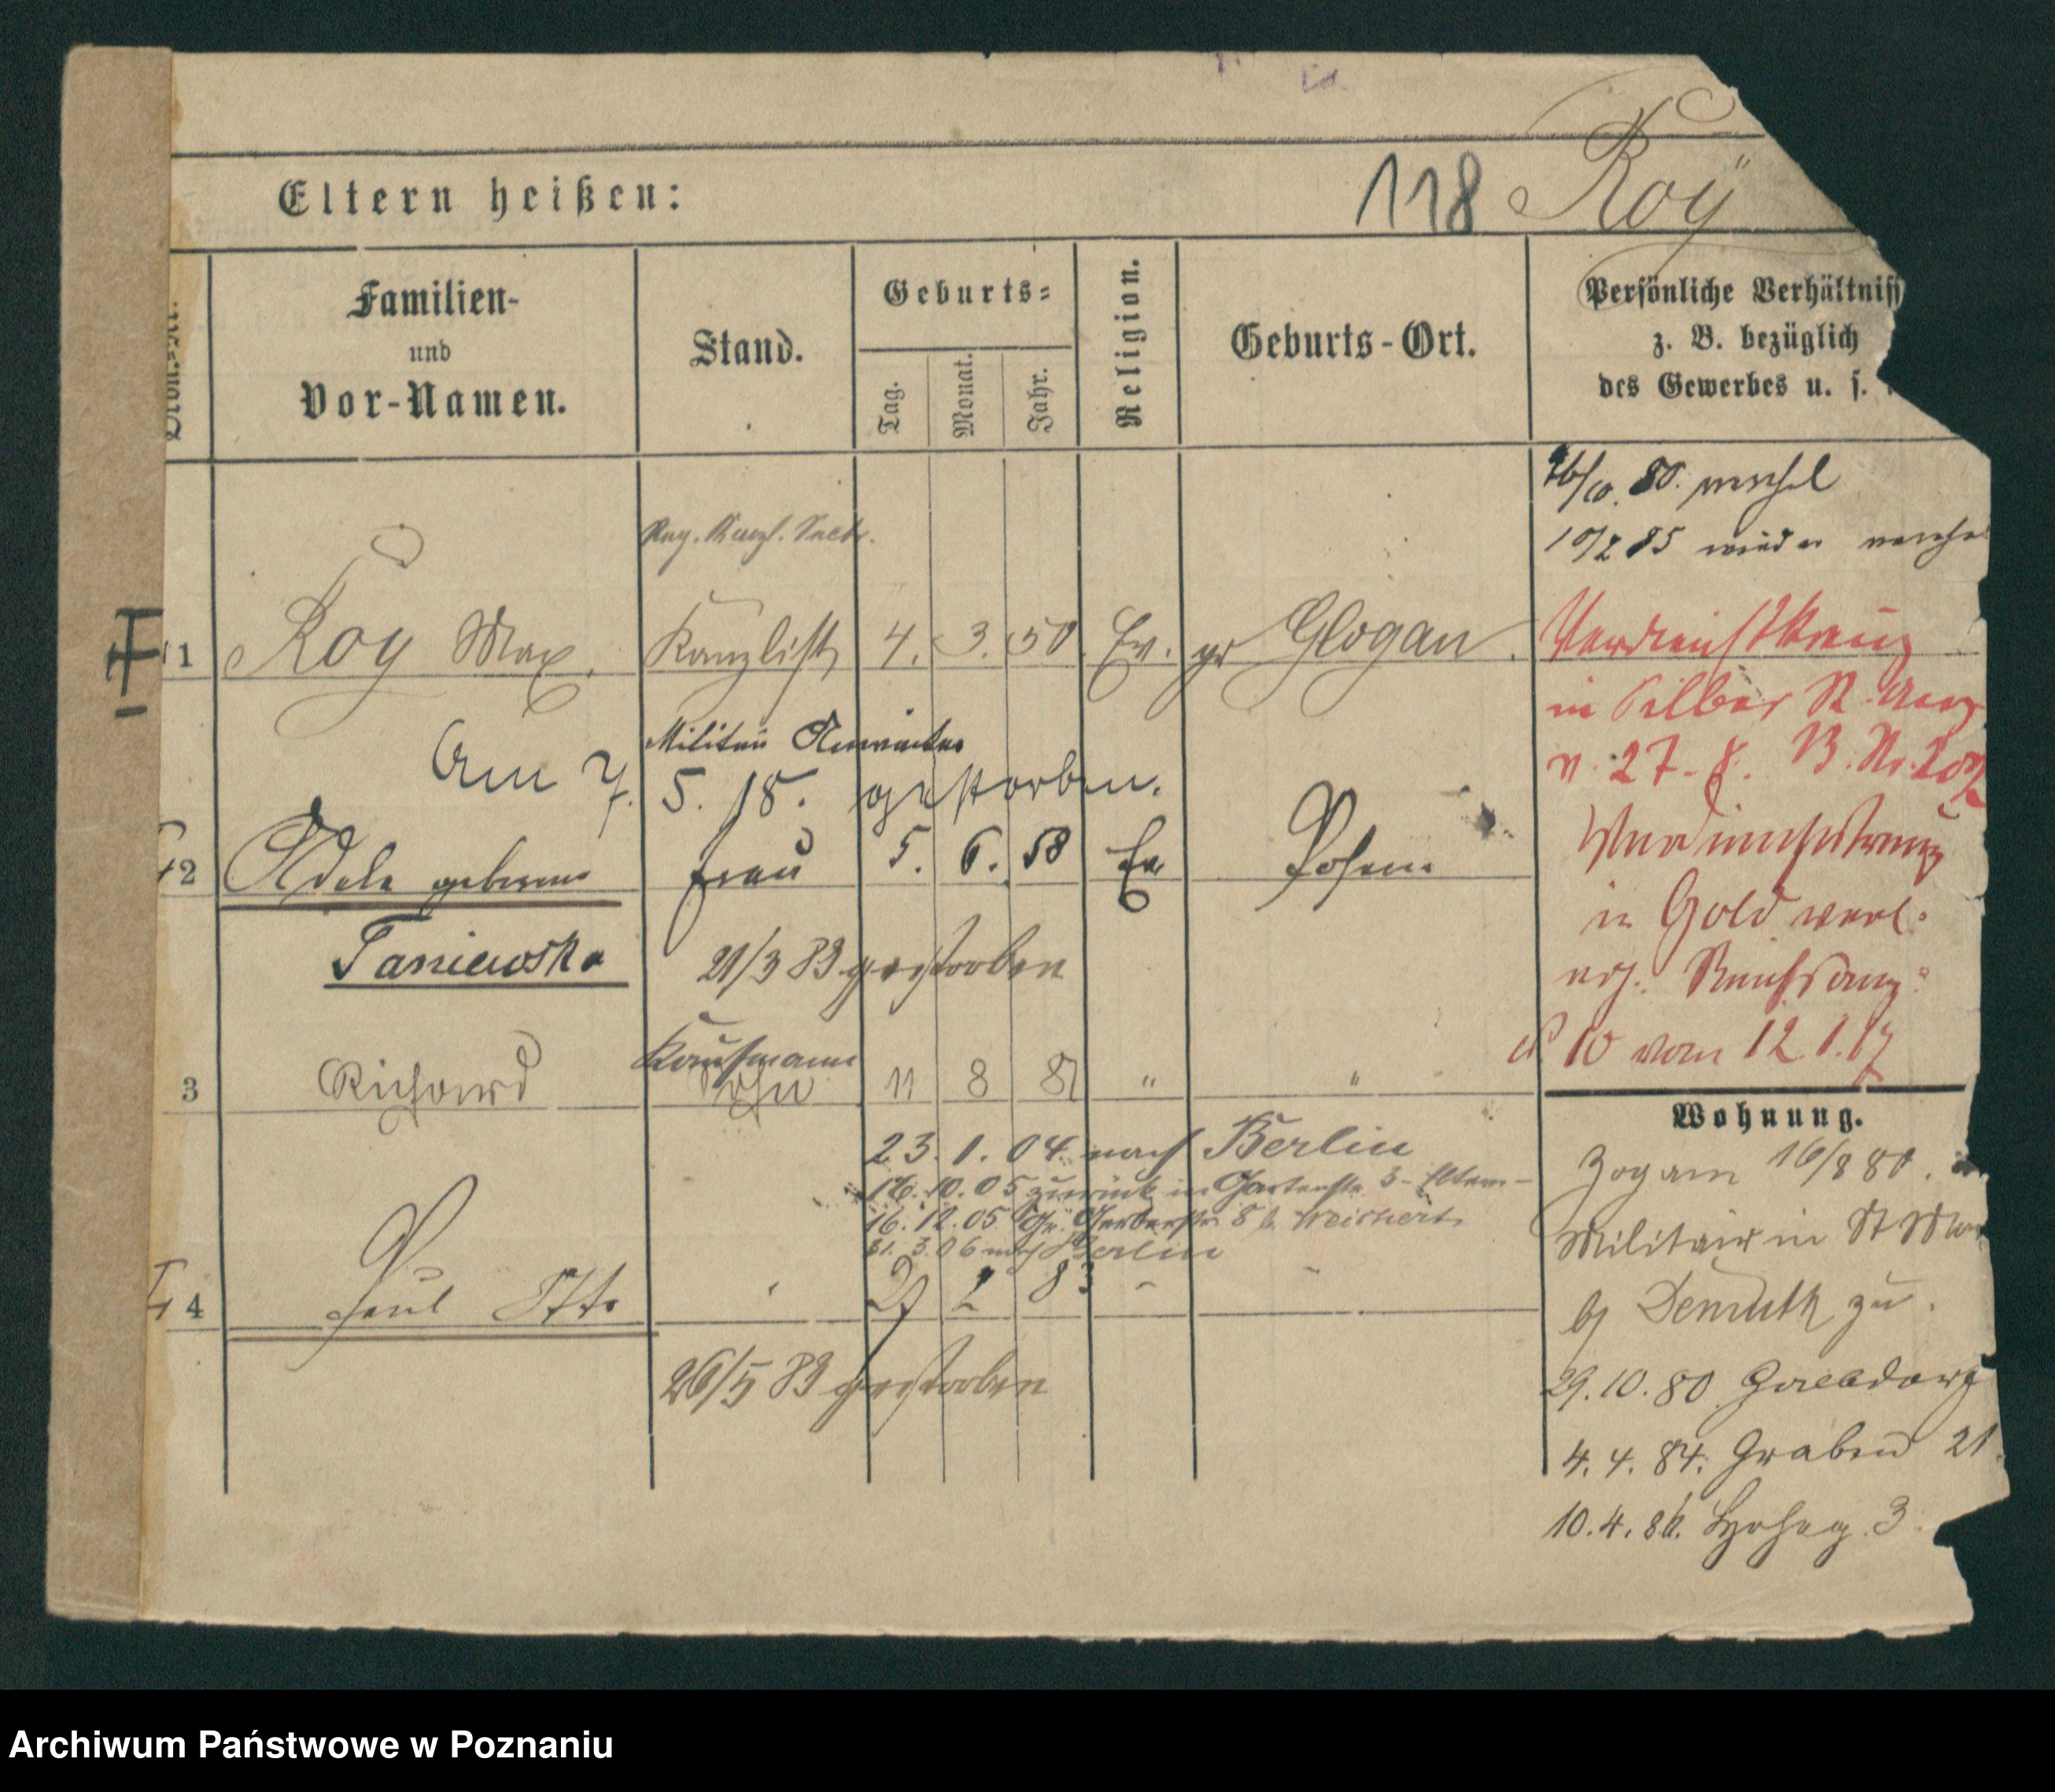 118 Roÿ
Eltern heißen:
Familien-
und
Vor-Namen.
Stand.
Geburts-
Tag.
Monat.
Jahr.
Religion.
Geburts-Ort.
Persönliche Verhältniss
z. B. bezüglich
des Gewerbes u. s.
80.
10/2 85 wieder
Reg. Kanzl. Sekr.
1 Roy Max. Kanzlist 4. 3. 50 Ev. gr Glogau.
Verdienstkreuz
in Silber
v. 27. 8. B. Nr.
Militär Anwärter
Am 7. 5. 18. gestorben.
2 Adele geborene Frau 5. 6. 58 Ev Posen
Taniewska
21/3 83 gestorben
Verdienstkreuz
in Gold verl.
Reichsanz.
10 vom 12.1.17
Kaufmann
3 Richard Sohn 11 8 81 " "
Wohnung.
23. 1. 04. nach Berlin
16. 10. 05 zurück in Gartenstr. 3 - Eltern -
16. 12. 05 Gr. Gerberstr 8 b. Weichert
31. 3. 06 nach Berlin
4 Paul Otto 27 2 83
26/5 83 gestorben
Zog am 16/8 80.
Militair in St
b/ Demuth zu.
29. 10. 80.
4. 4. 84. Graben 21.
10. 4. 86. 3.
Archiwum Państwowe w Poznaniu